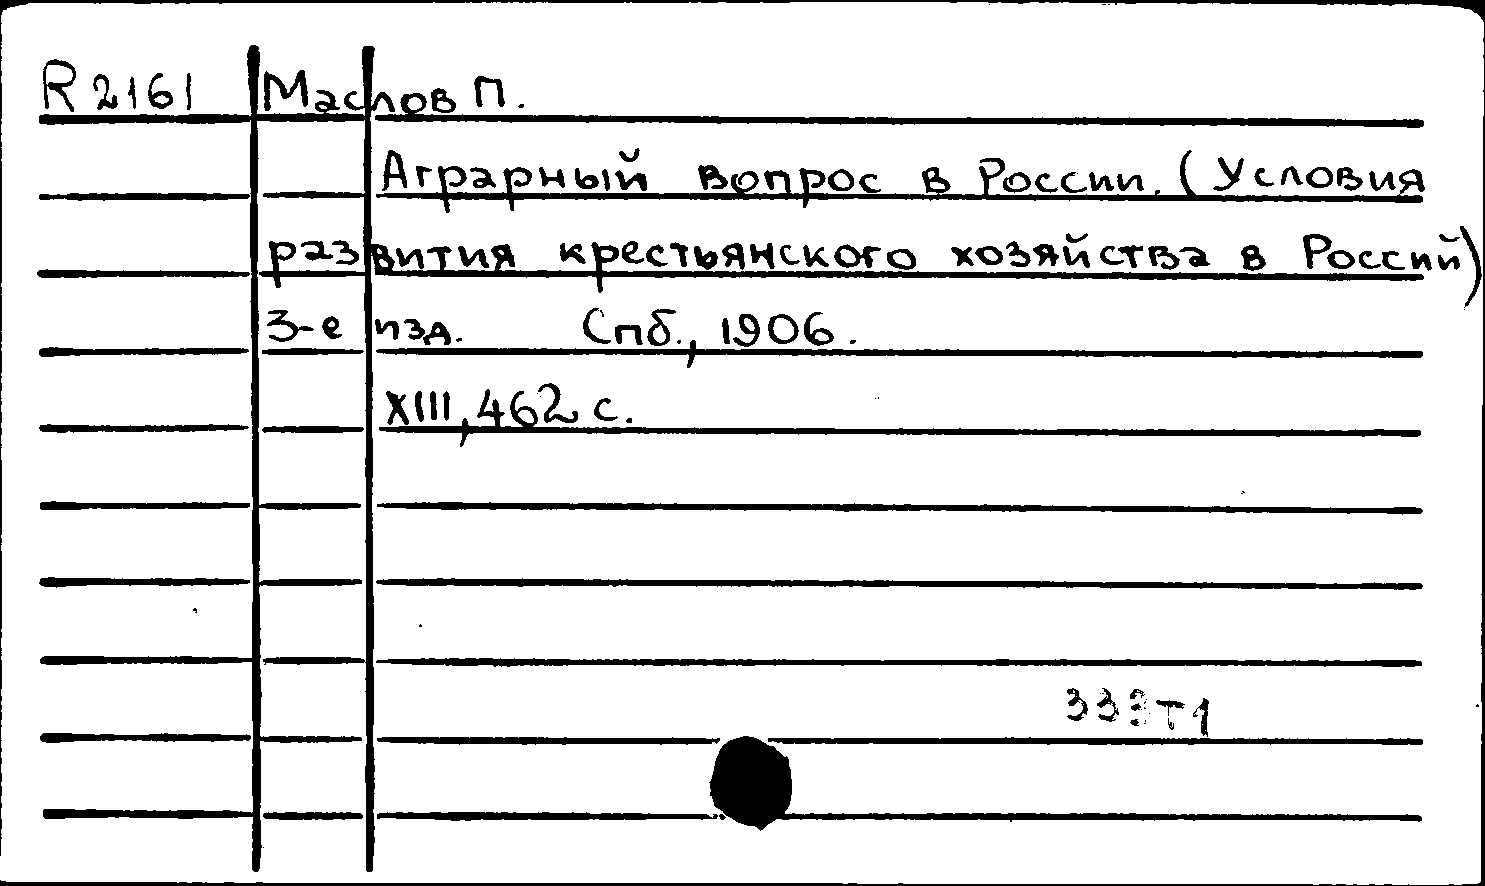 R 2161 Маслов П.
Аграрный вопрос в России. (Условия
развития крестьянского хозяйства в Россий)
3-е изд. Спб., 1906.
XIII, 462 с.
333т1